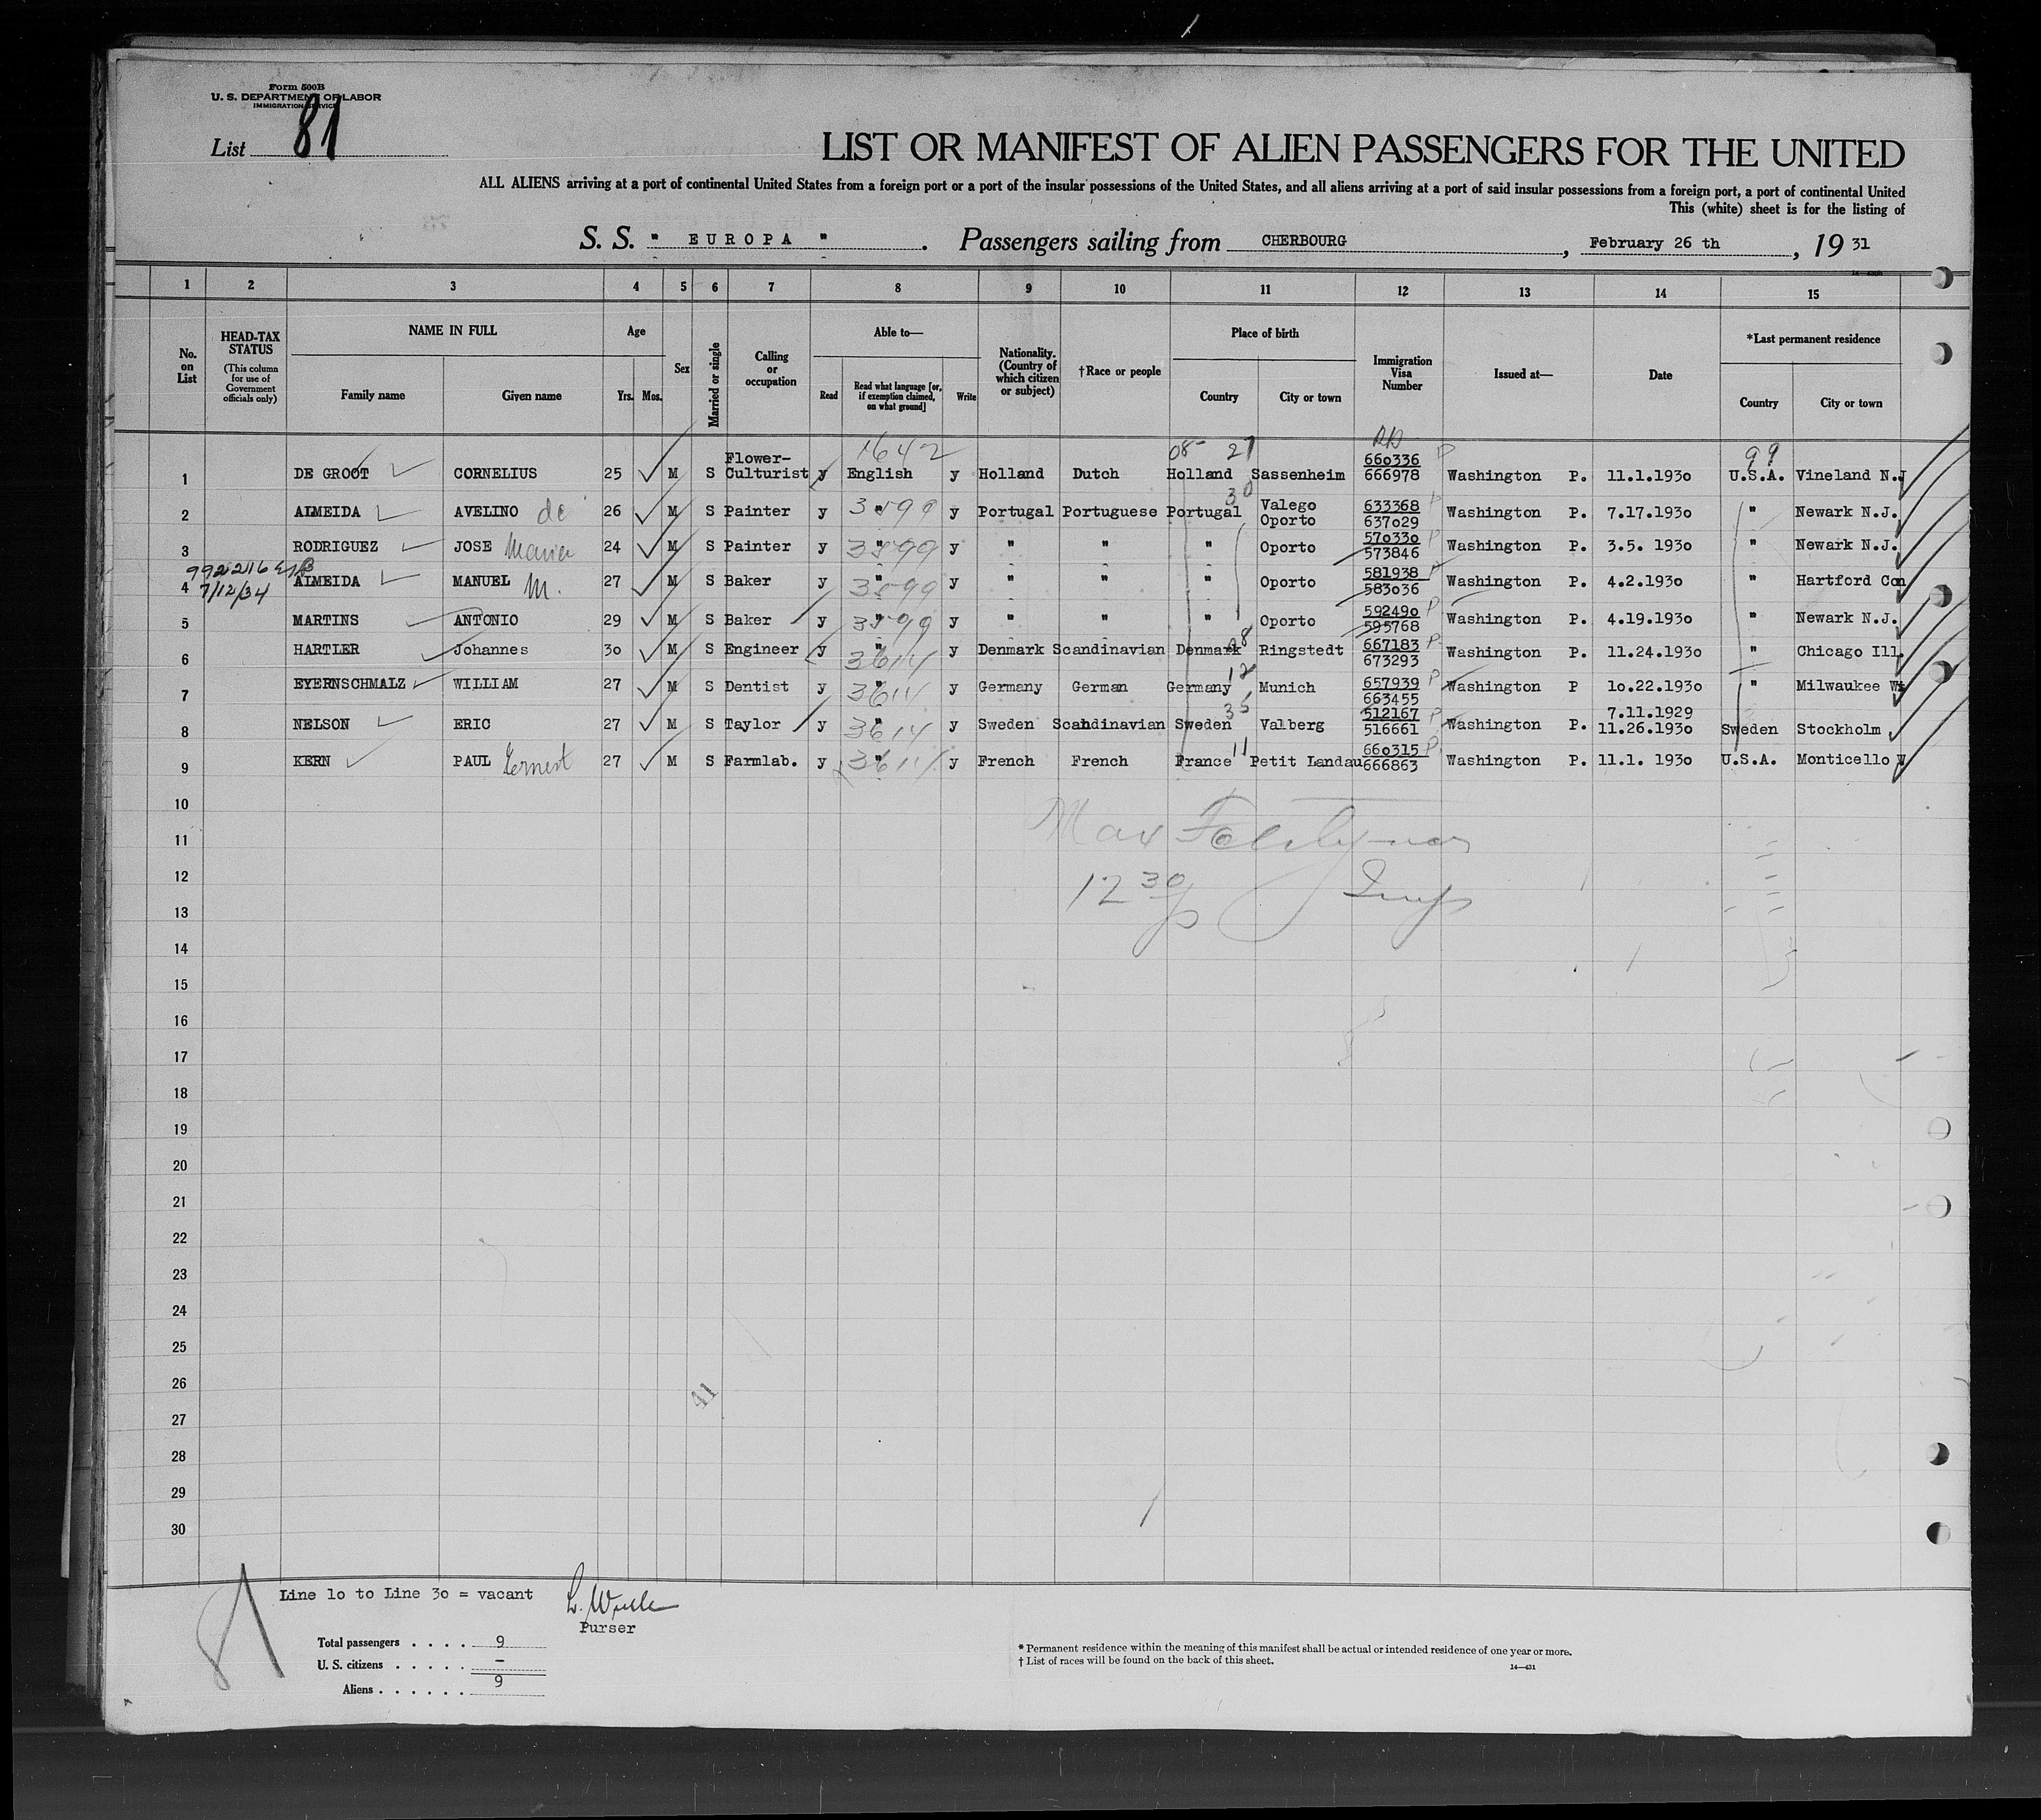 Form 500B
U. S. DEPARTMENT OF LABOR
IMMIGRATION SERVICE
List 81
LIST OR MANIFEST OF ALIEN PASSENGERS FOR THE UNITED
ALL ALIENS arriving at a port of continental United States from a foreign port or a port of the insular possessions of the United States, and all aliens arriving at a port of said insular possessions from a foreign port, a port of continental United
This (white) sheet is for the listing of
S. S. " EUROPA " . Passengers sailing from CHERBOURG , February 26 th , 19 31
1 2 3 4 5 6 7 8 9 10 11 12 13 14 15
No. on List
HEAD-TAX STATUS
(This column for use of Government officials only)
NAME IN FULL
Family name Given name
Age
Yrs. Mos.
Sex
Married or single
Calling or occupation
Able to—
Read Read what language [or, if exemption claimed, on what ground] Write
Nationality. (Country of which citizen or subject)
†Race or people
Place of birth
Country City or town
Immigration Visa Number
Issued at—
Date
*Last permanent residence
Country City or town
1642 08 27 99
1 DE GROOT CORNELIUS 25 M S Flower-Culturist y English y Holland Dutch Holland Sassenheim 660336 666978 P Washington P. 11.1.1930 U.S.A. Vineland N.J
30
2 ALMEIDA AVELINO de 26 M S Painter y " 3899 y Portugal Portuguese Portugal Valego Oporto 633368 637029 P Washington P. 7.17.1930 " Newark N.J.
3 RODRIGUEZ JOSE Maria 24 M S Painter y " 3899 y " " " Oporto 570330 573846 P Washington P. 3.5. 1930 " Newark N.J.
992216
7/12/34
4 ALMEIDA MANUEL M. 27 M S Baker y " 3899 y " " " Oporto 581938 583036 P Washington P. 4.2.1930 " Hartford Con
5 MARTINS ANTONIO 29 M S Baker y " 3899 y " " " Oporto 592490 595768 P Washington P. 4.19.1930 " Newark N.J.
6 HARTLER Johannes 30 M S Engineer y " 3614 y Denmark Scandinavian Denmark 08 Ringstedt 667183 673293 P Washington P. 11.24.1930 " Chicago Ill.
7 EYERNSCHMALZ WILLIAM 27 M S Dentist y " 3614 y Germany German Germany 12 Munich 657939 663455 P Washington P 10.22.1930 " Milwaukee Wi
8 NELSON ERIC 27 M S Taylor y " 3614 y Sweden Scandinavian Sweden 35 Valberg 512167 516661 P Washington P. 7.11.1929 11.26.1930 Sweden Stockholm
9 KERN PAUL Ernest 27 M S Farmlab. y " 3614 y French French France 11 Petit Landau 660315 666863 P Washington P. 11.1. 1930 U.S.A. Monticello
10
11 Max
12 12 30 p Insp
13
14
15
16
17
18
19
20
21
22
23
24
25
26
41
27
28
29
30
81
Line 10 to Line 30 = vacant
Purser
Total passengers . . . . 9
U. S. citizens . . . . . —
Aliens . . . . . . 9
* Permanent residence within the meaning of this manifest shall be actual or intended residence of one year or more.
† List of races will be found on the back of this sheet.
14—431